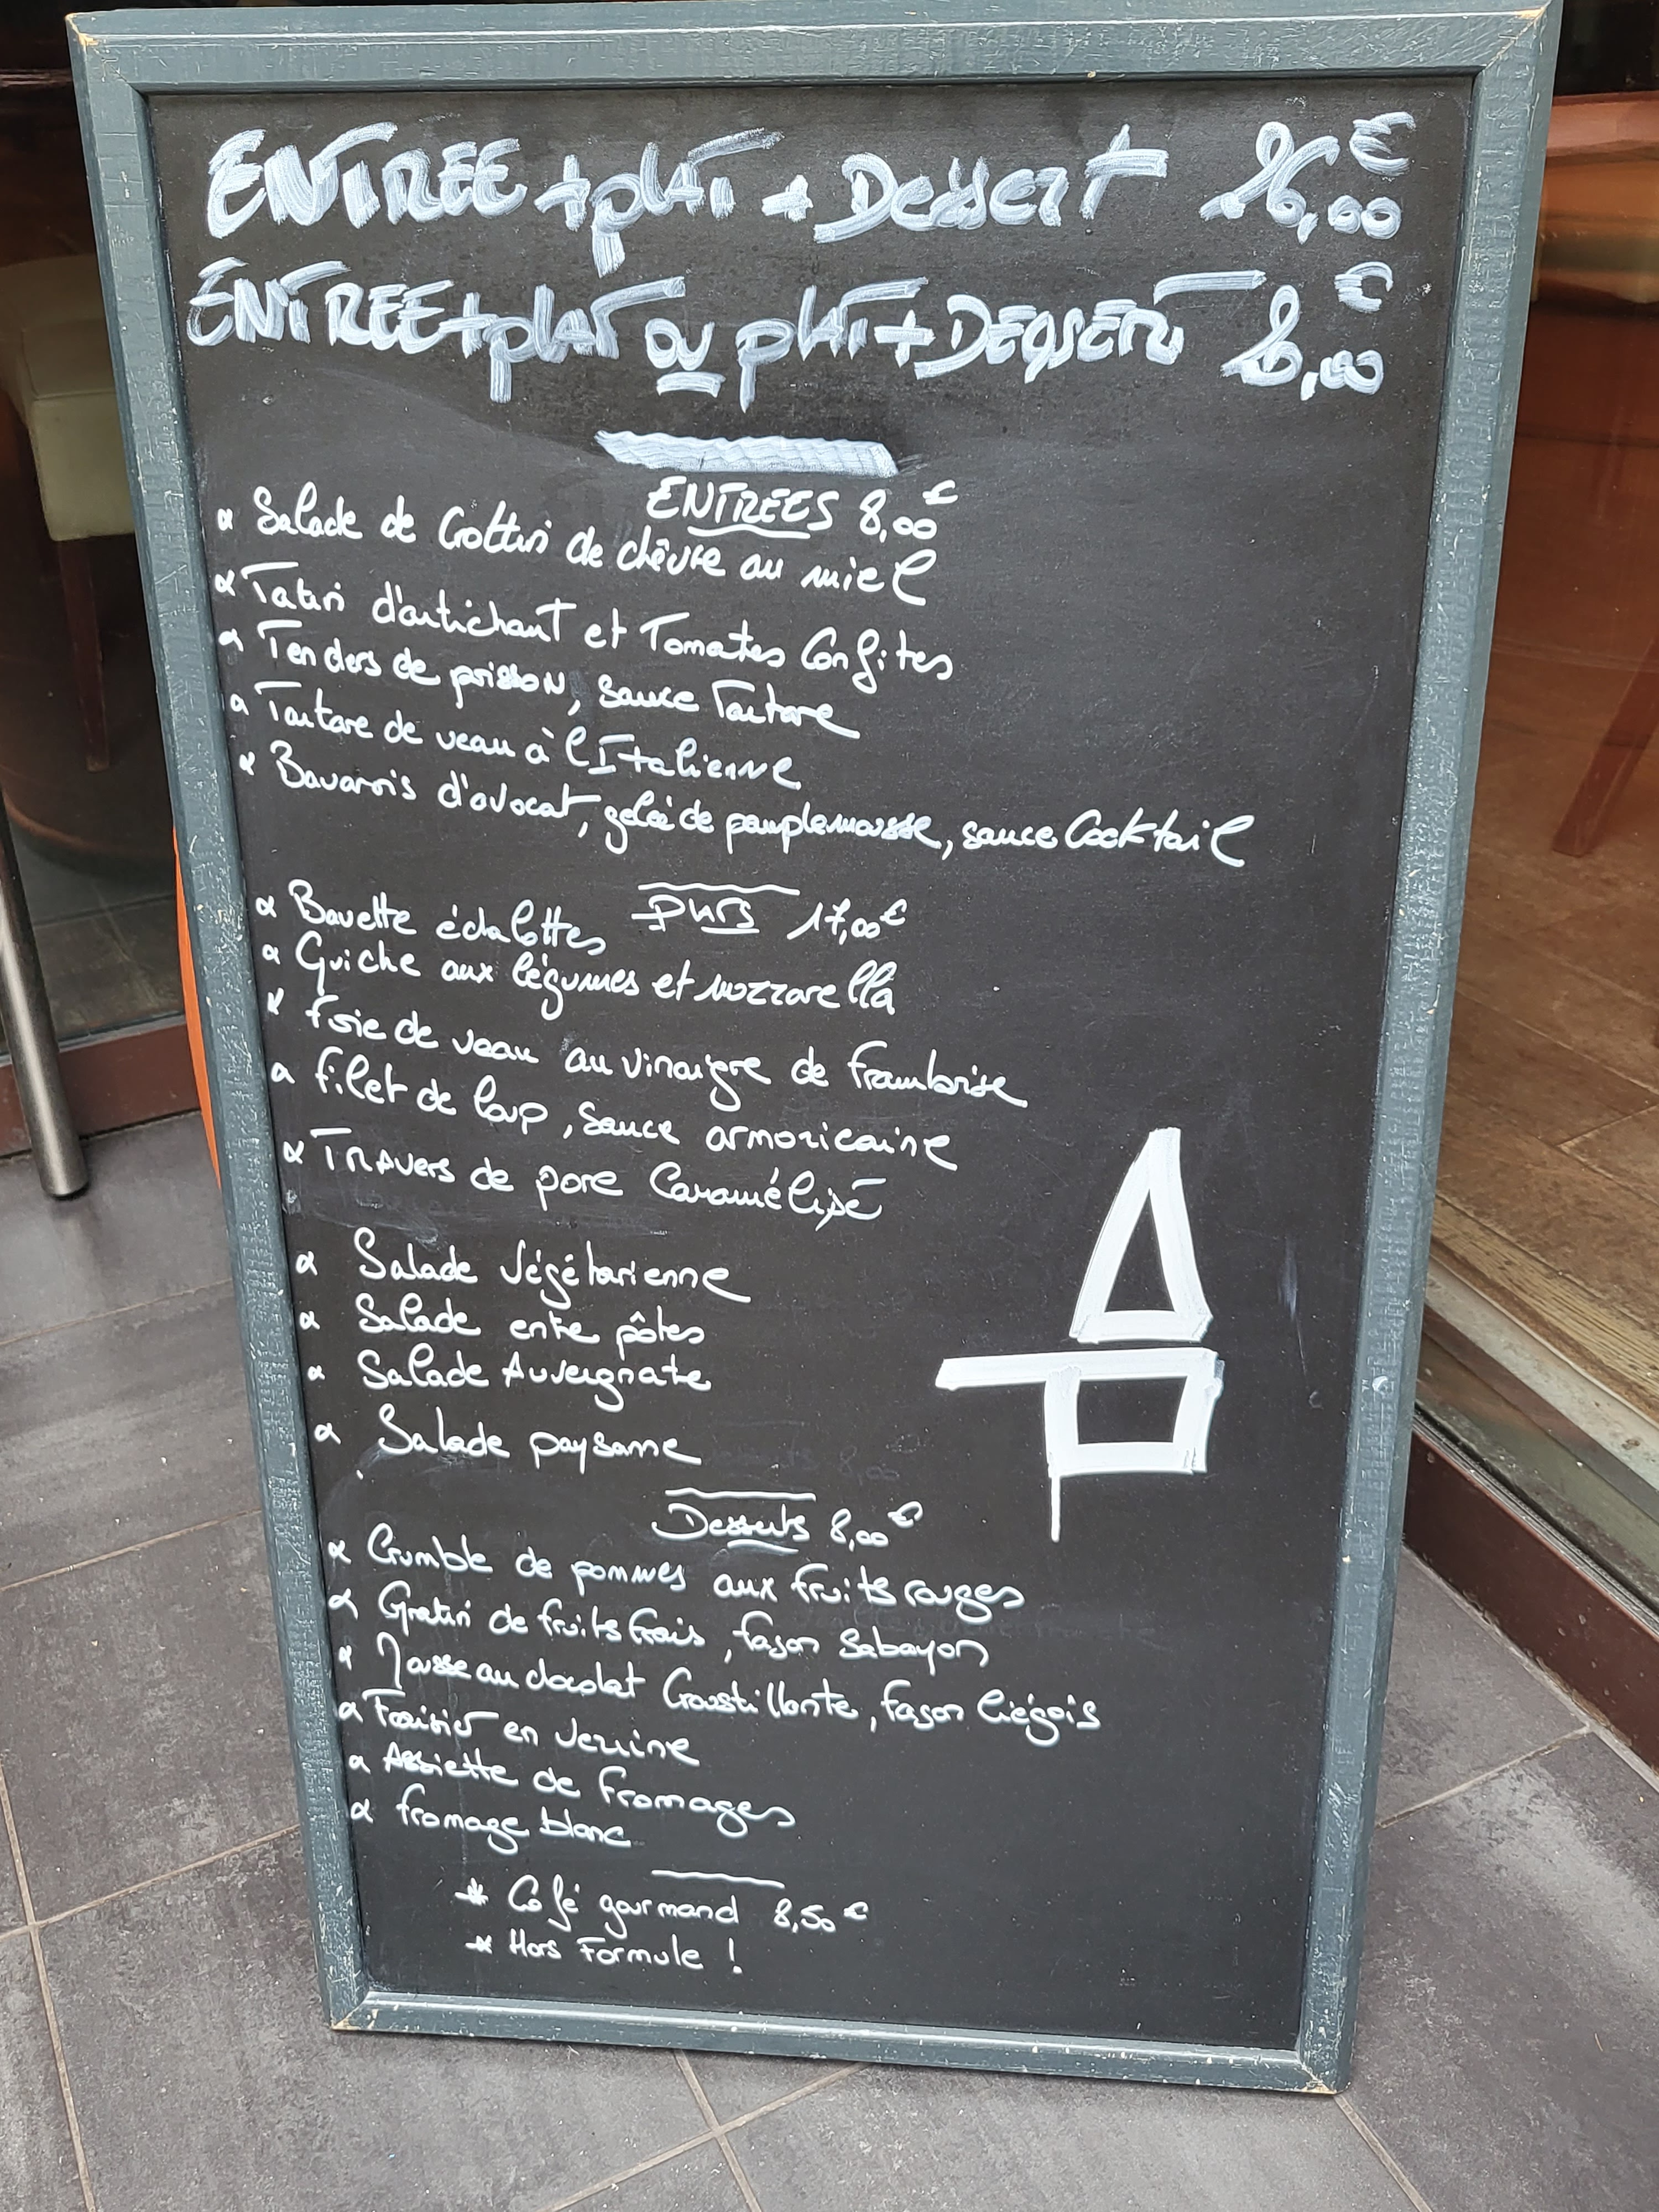 ENTREE + plat + Dessert 26,00€
ENTREE + plat ou plat + DESSERT 20,00€
ENTREES 8,00€
Salade de Crottin de chêvre au miel
Tatin d'artichaut et Tomates Confites
Tenders de poisson, sauce Tartare
Tartare de veau à l'Italienne
Bavarois d'avocat, gelée de pamplemousse, sauce Cocktail
Plats 17,00€
Bavette échalottes
Quiche aux légumes et mozzarella
Foie de veau au vinaigre de framboise
filet de loup, sauce armoricaine
TRAVERS de porc Caramélisé
Salade Végétarienne
Salade entre pôtes
Salade Auvergnate
Salade paysanne
Desserts 8,00€
Crumble de pommes aux fruits rouges
Gratin de fruits frais, façon Sabayon
Mousse au chocolat Croustillante, façon liégois
Fraisier en verrine
Assiette de Fromages
fromage blanc
* Café gourmand 8,50€
* Hors Formule !